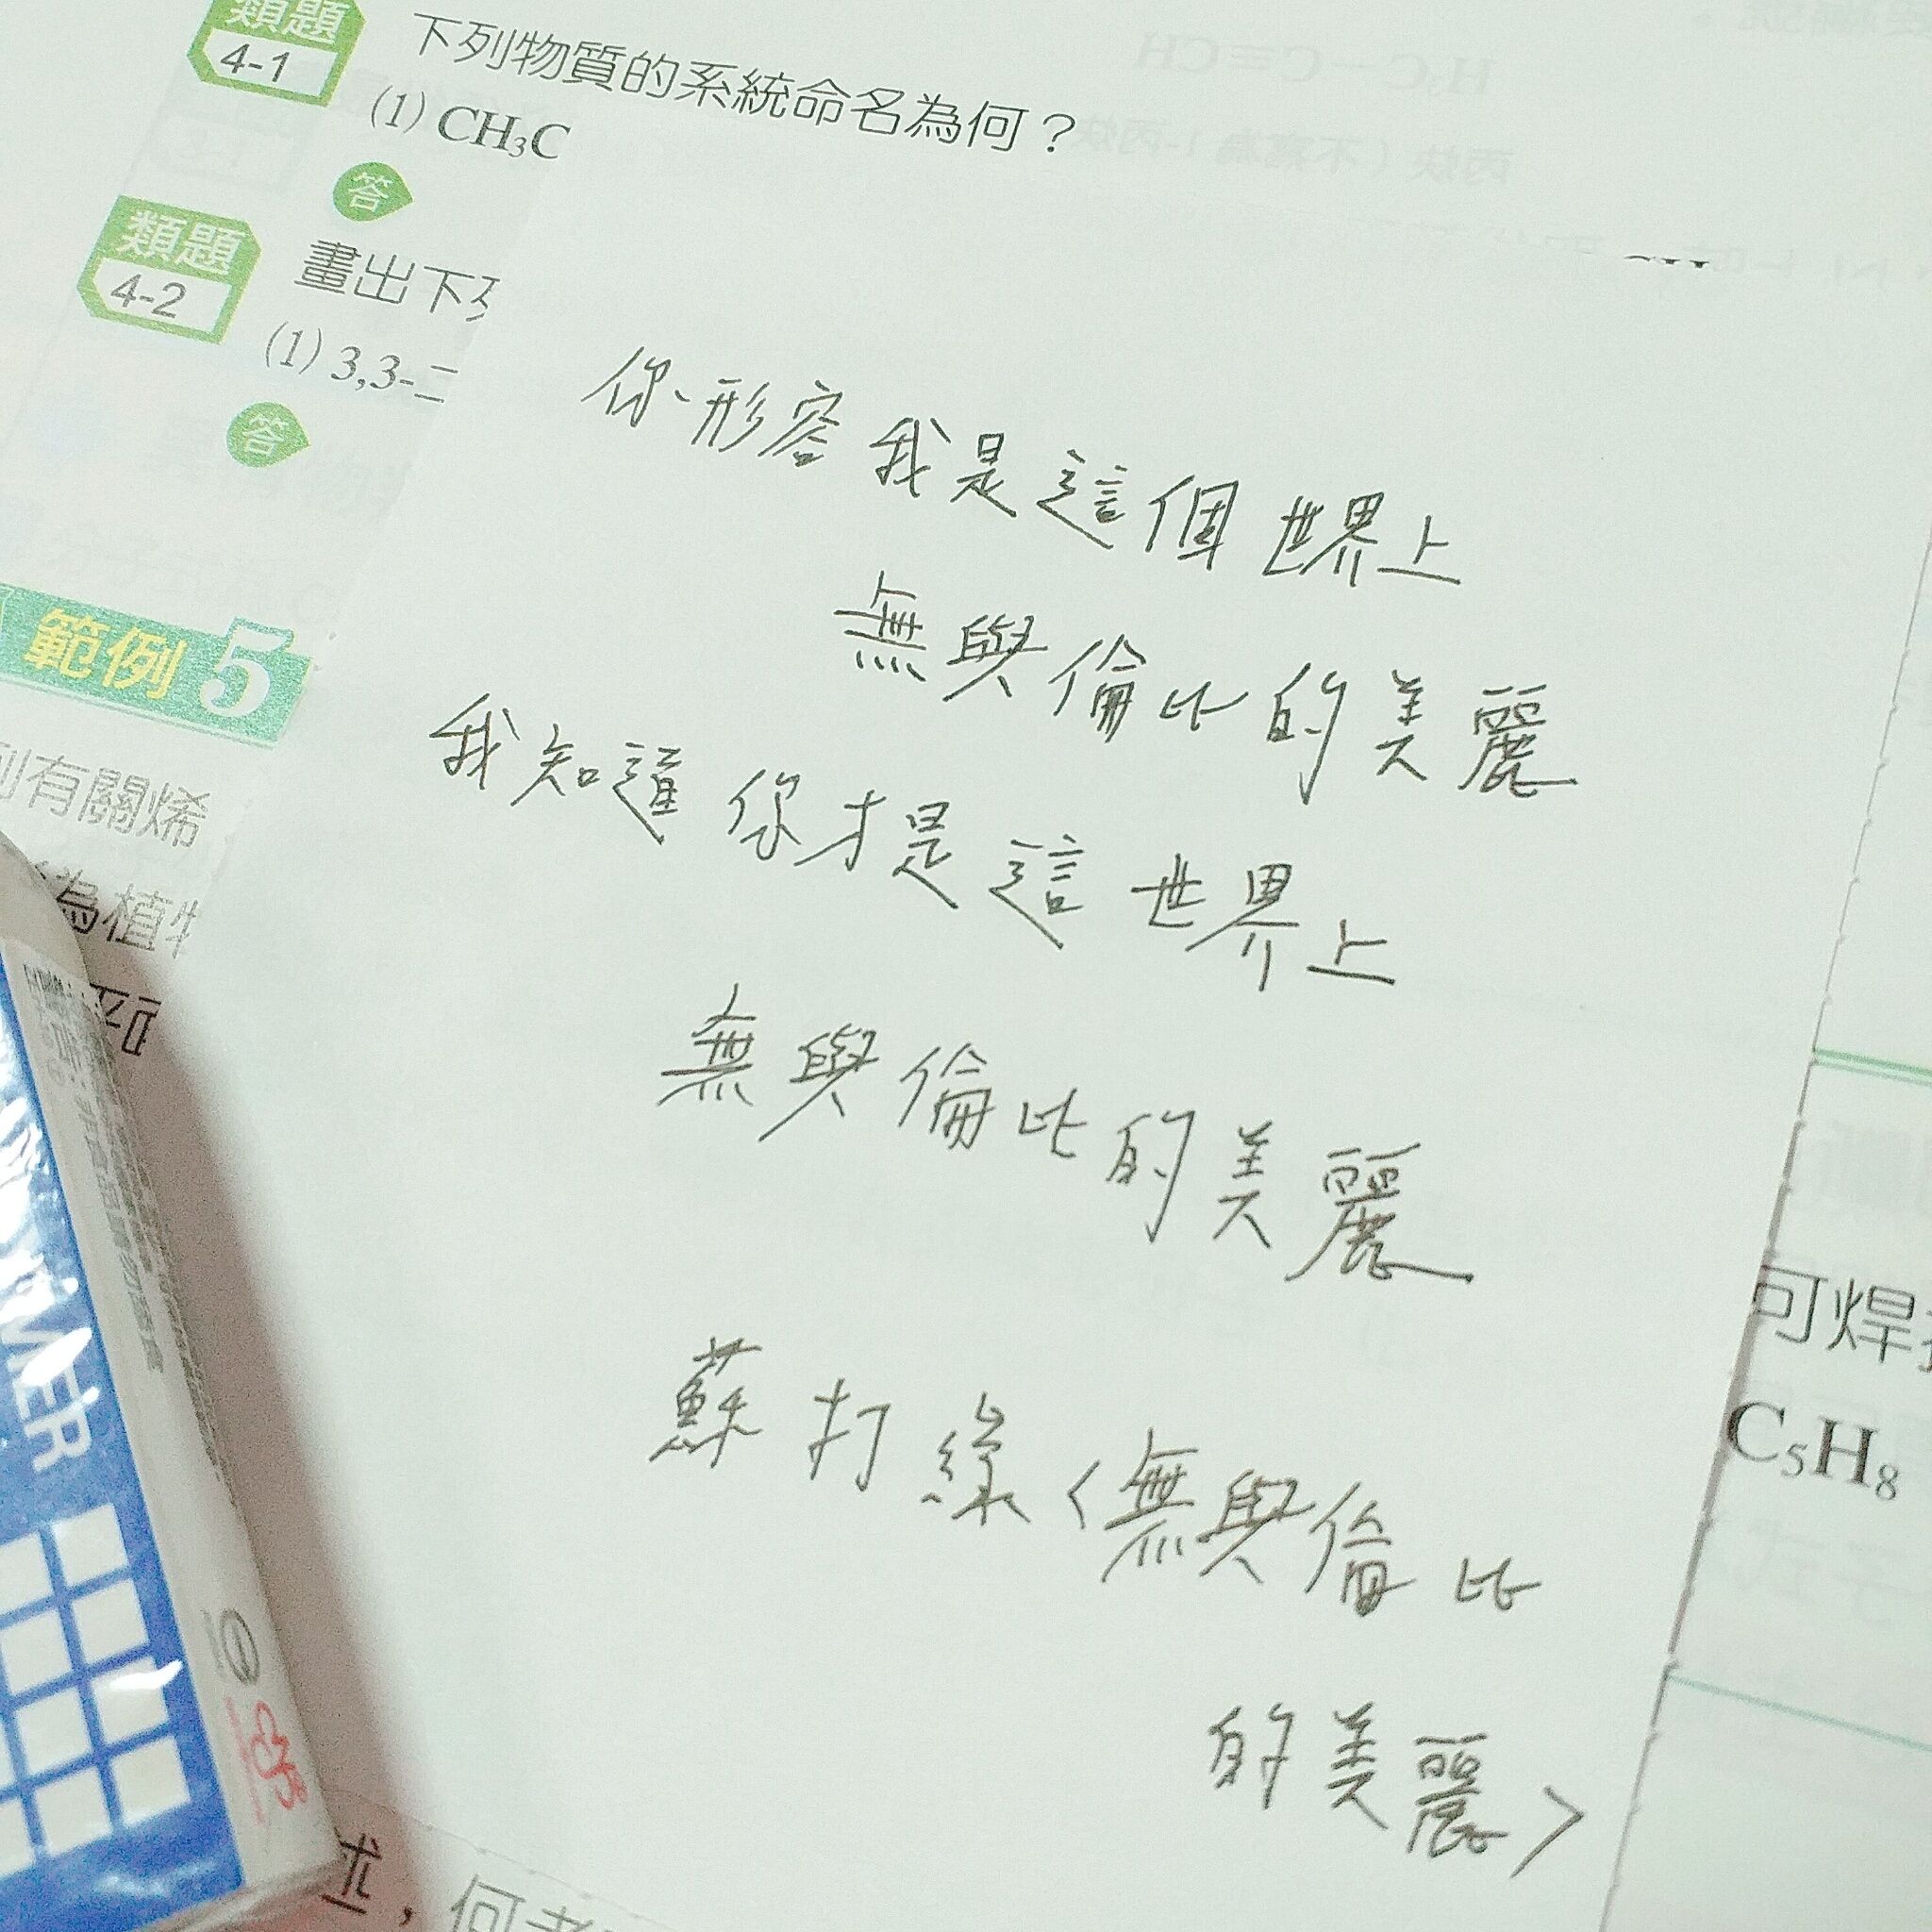 類題
4-1
下列物質的系統命名為何？
(1) CH₃C
答
類題
4-2
畫出下列
(1) 3,3-二
答
範例5
列有關烯
為植物
你形容我是這個世界上
無與倫比的美麗
我知道你才是這世界上
無與倫比的美麗
蘇打綠〈無與倫比
的美麗〉
可焊接
C₅H₈
述，何者